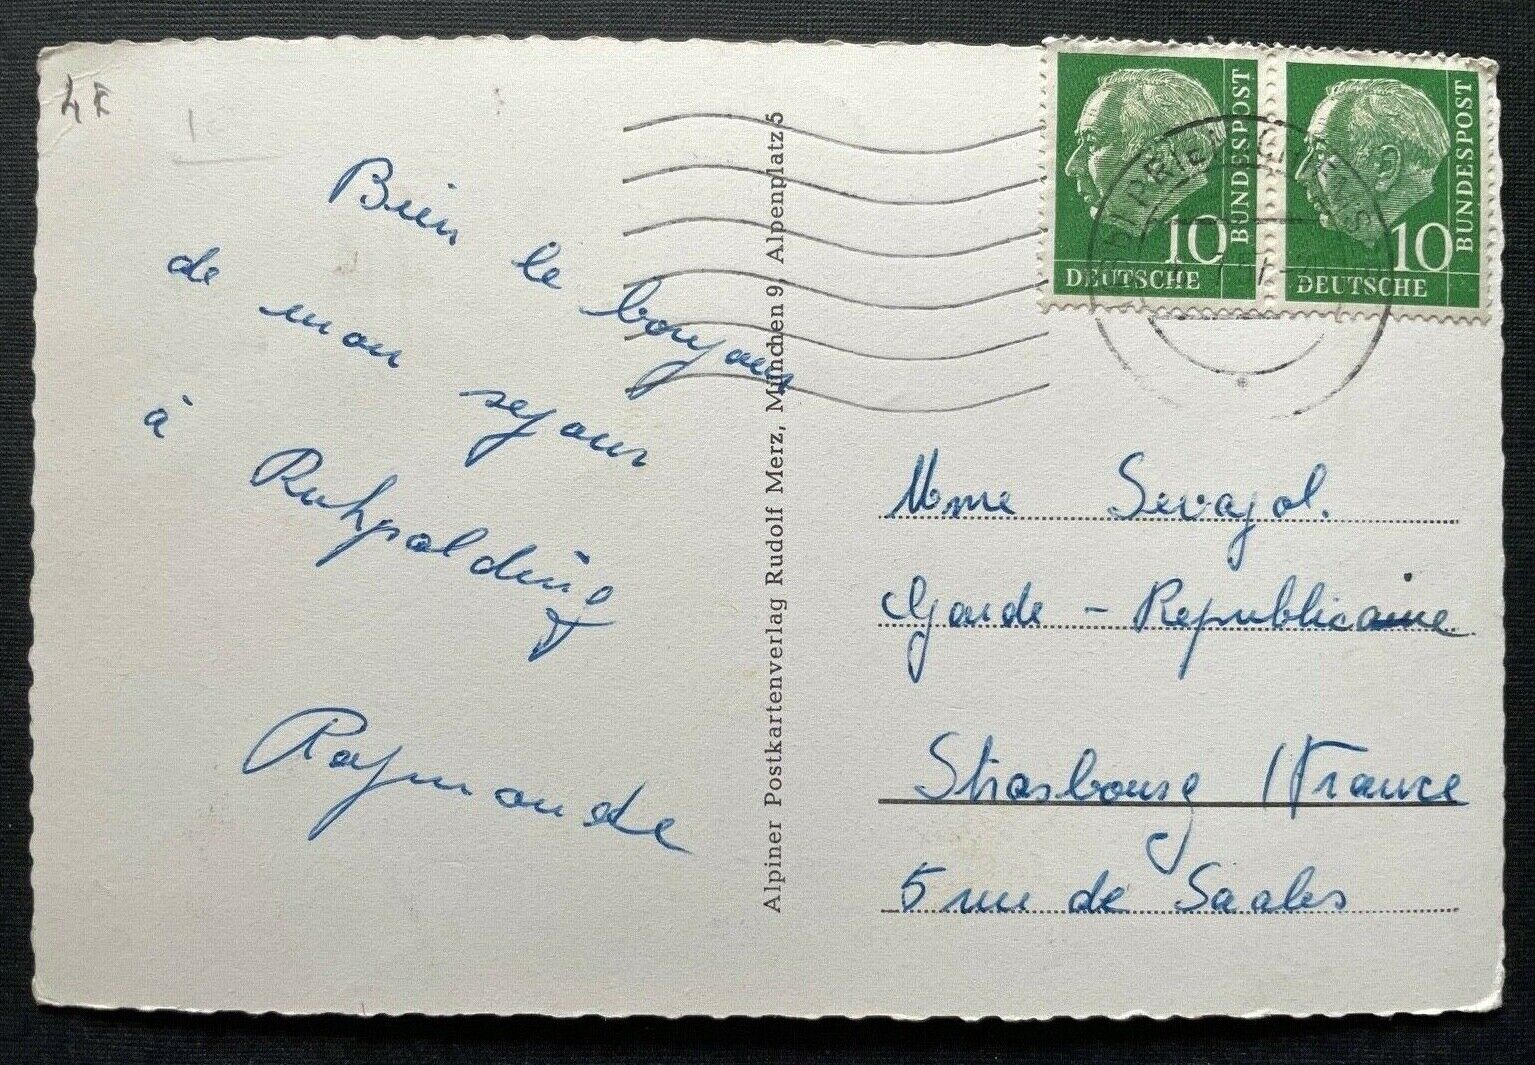 Bien le bonjour
de mon sejour
à Ruhpolding
Raymonde
Alpiner Postkartenverlag Rudolf Merz, München 9, Alpenplatz 5
10
BUNDESPOST
DEUTSCHE
10
BUNDESPOST
DEUTSCHE
PRIEN CHIEMS
Mme Sevajol.
Garde - Republicaine
Strasbourg /France
5 rue de Saales